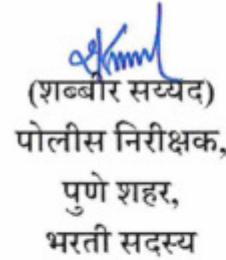 (शब्बीर सय्यद)
पोलीस निरीक्षक,
पुणे शहर,
भरती सदस्य